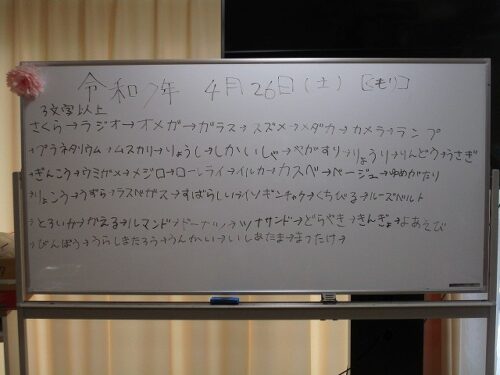 令和7年 4月26日(土) [くもり]
3文字以上
さくら→ラジオ→オメガ→ガラス→スズメ→メダカ→カメラ→ランプ
→プラネタリウム→ムスカリ→りょうし→しかいしゃ→やがすり→りょうり→りんどう→うさぎ
→ぎんこう→ウミガメ→メジロ→ローライ→イルカ→カスベ→ベージュ→ゆめがたり
→りょこう→うずら→ラスベガス→すばらしい→イソギンチャク→くちびる→ルーズベルト
→とろいか→かえる→ルマンド→ドーナッツ→ツナサンド→どらやき→きんぎょ→よあえび
→びんぼう→うらしまたろう→うんかい→いしあたま→まったけ→